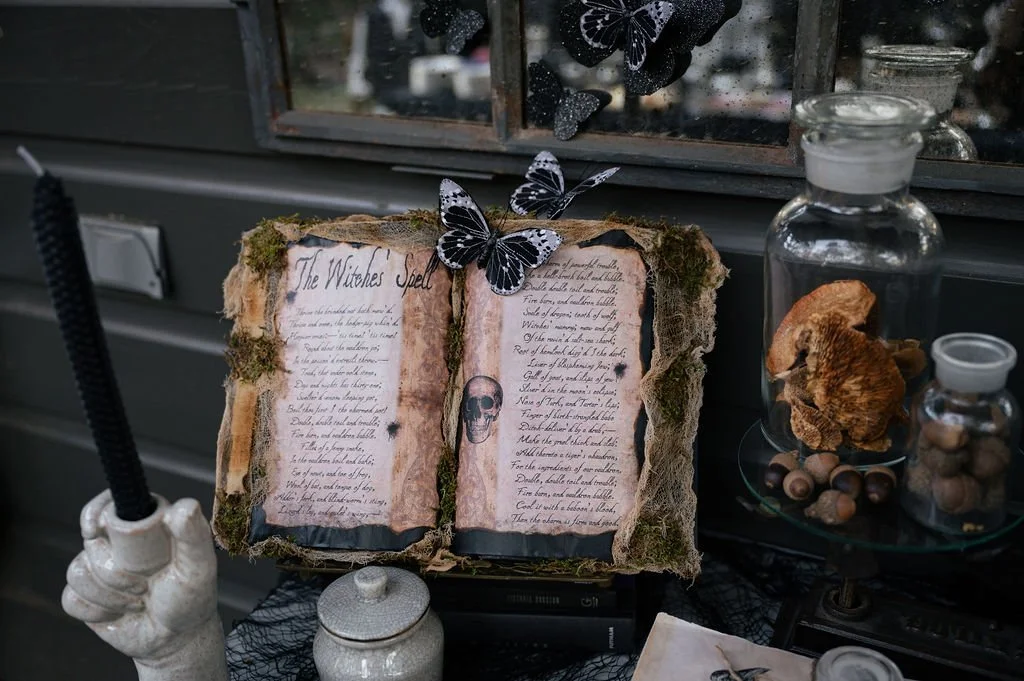 The Witches' Spell
Thrice the brinded cat hath mew'd.
Thrice and once, the hedge-pig whin'd.
Harpier cries:—'tis time! 'tis time!
Round about the cauldron go;
In the poison'd entrails throw.—
Toad, that under cold stone,
Days and nights has thirty-one;
Swelter'd venom sleeping got,
Boil thou first i' the charmed pot!
Double, double toil and trouble;
Fire burn, and cauldron bubble.
Fillet of a fenny snake,
In the cauldron boil and bake;
Eye of newt, and toe of frog,
Wool of bat, and tongue of dog,
Adder's fork, and blind-worm's sting,
Lizard's leg, and owlet's wing,—
charm of powerful trouble,
Like a hell-broth boil and bubble.
Double, double toil and trouble;
Fire burn, and cauldron bubble.
Scale of dragon; tooth of wolf;
Witches' mummy; maw and gulf
Of the ravin'd salt-sea shark;
Root of hemlock digg'd i the dark;
Liver of blaspheming Jew;
Gall of goat, and slips of yew
Sliver'd in the moon's eclipse;
Nose of Turk, and Tartar's lips;
Finger of birth-strangled babe
Ditch-deliver'd by a drab,—
Make the gruel thick and slab:
Add thereto a tiger's chaudron,
For the ingredients of our cauldron.
Double, double toil and trouble;
Fire burn, and cauldron bubble.
Cool it with a baboon's blood,
Then the charm is firm and good.